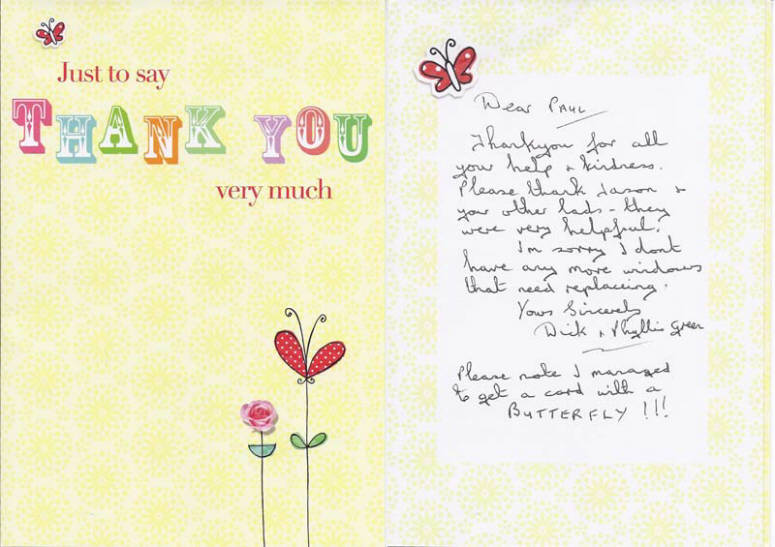 Just to say
THANK YOU
very much
Dear PAUL
Thankyou for all
your help & kindness.
Please thank Jason &
your other lads - they
were very helpful.
I'm sorry I dont
have any more windows
that need replacing.
Yours Sincerely
Dick & Phyllis Green
Please note I managed
to get a card with a
BUTTERFLY !!!